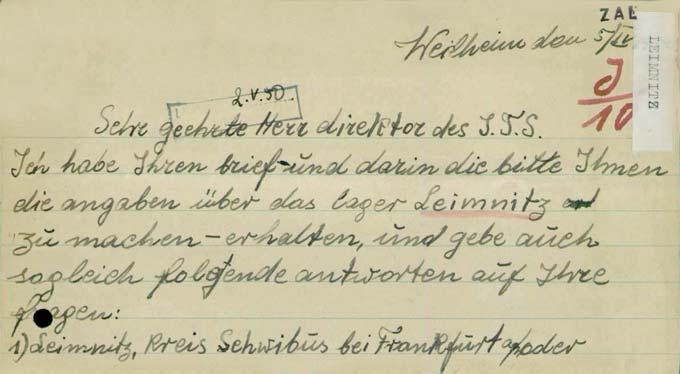 ZAL
LEIMNITZ
Weilheim den 5/IV
J/10
2.V.50.
Sehr geehrte Herr direktor des I.T.S.
Ich habe Ihren brief – und darin die bitte Ihmen
die angaben über das lager Leimnitz
zu machen – erhalten, und gebe auch
sogleich folgende antworten auf Ihre
fragen:
1) Leimnitz, Kreis Schwibus bei Frankfurt a/oder